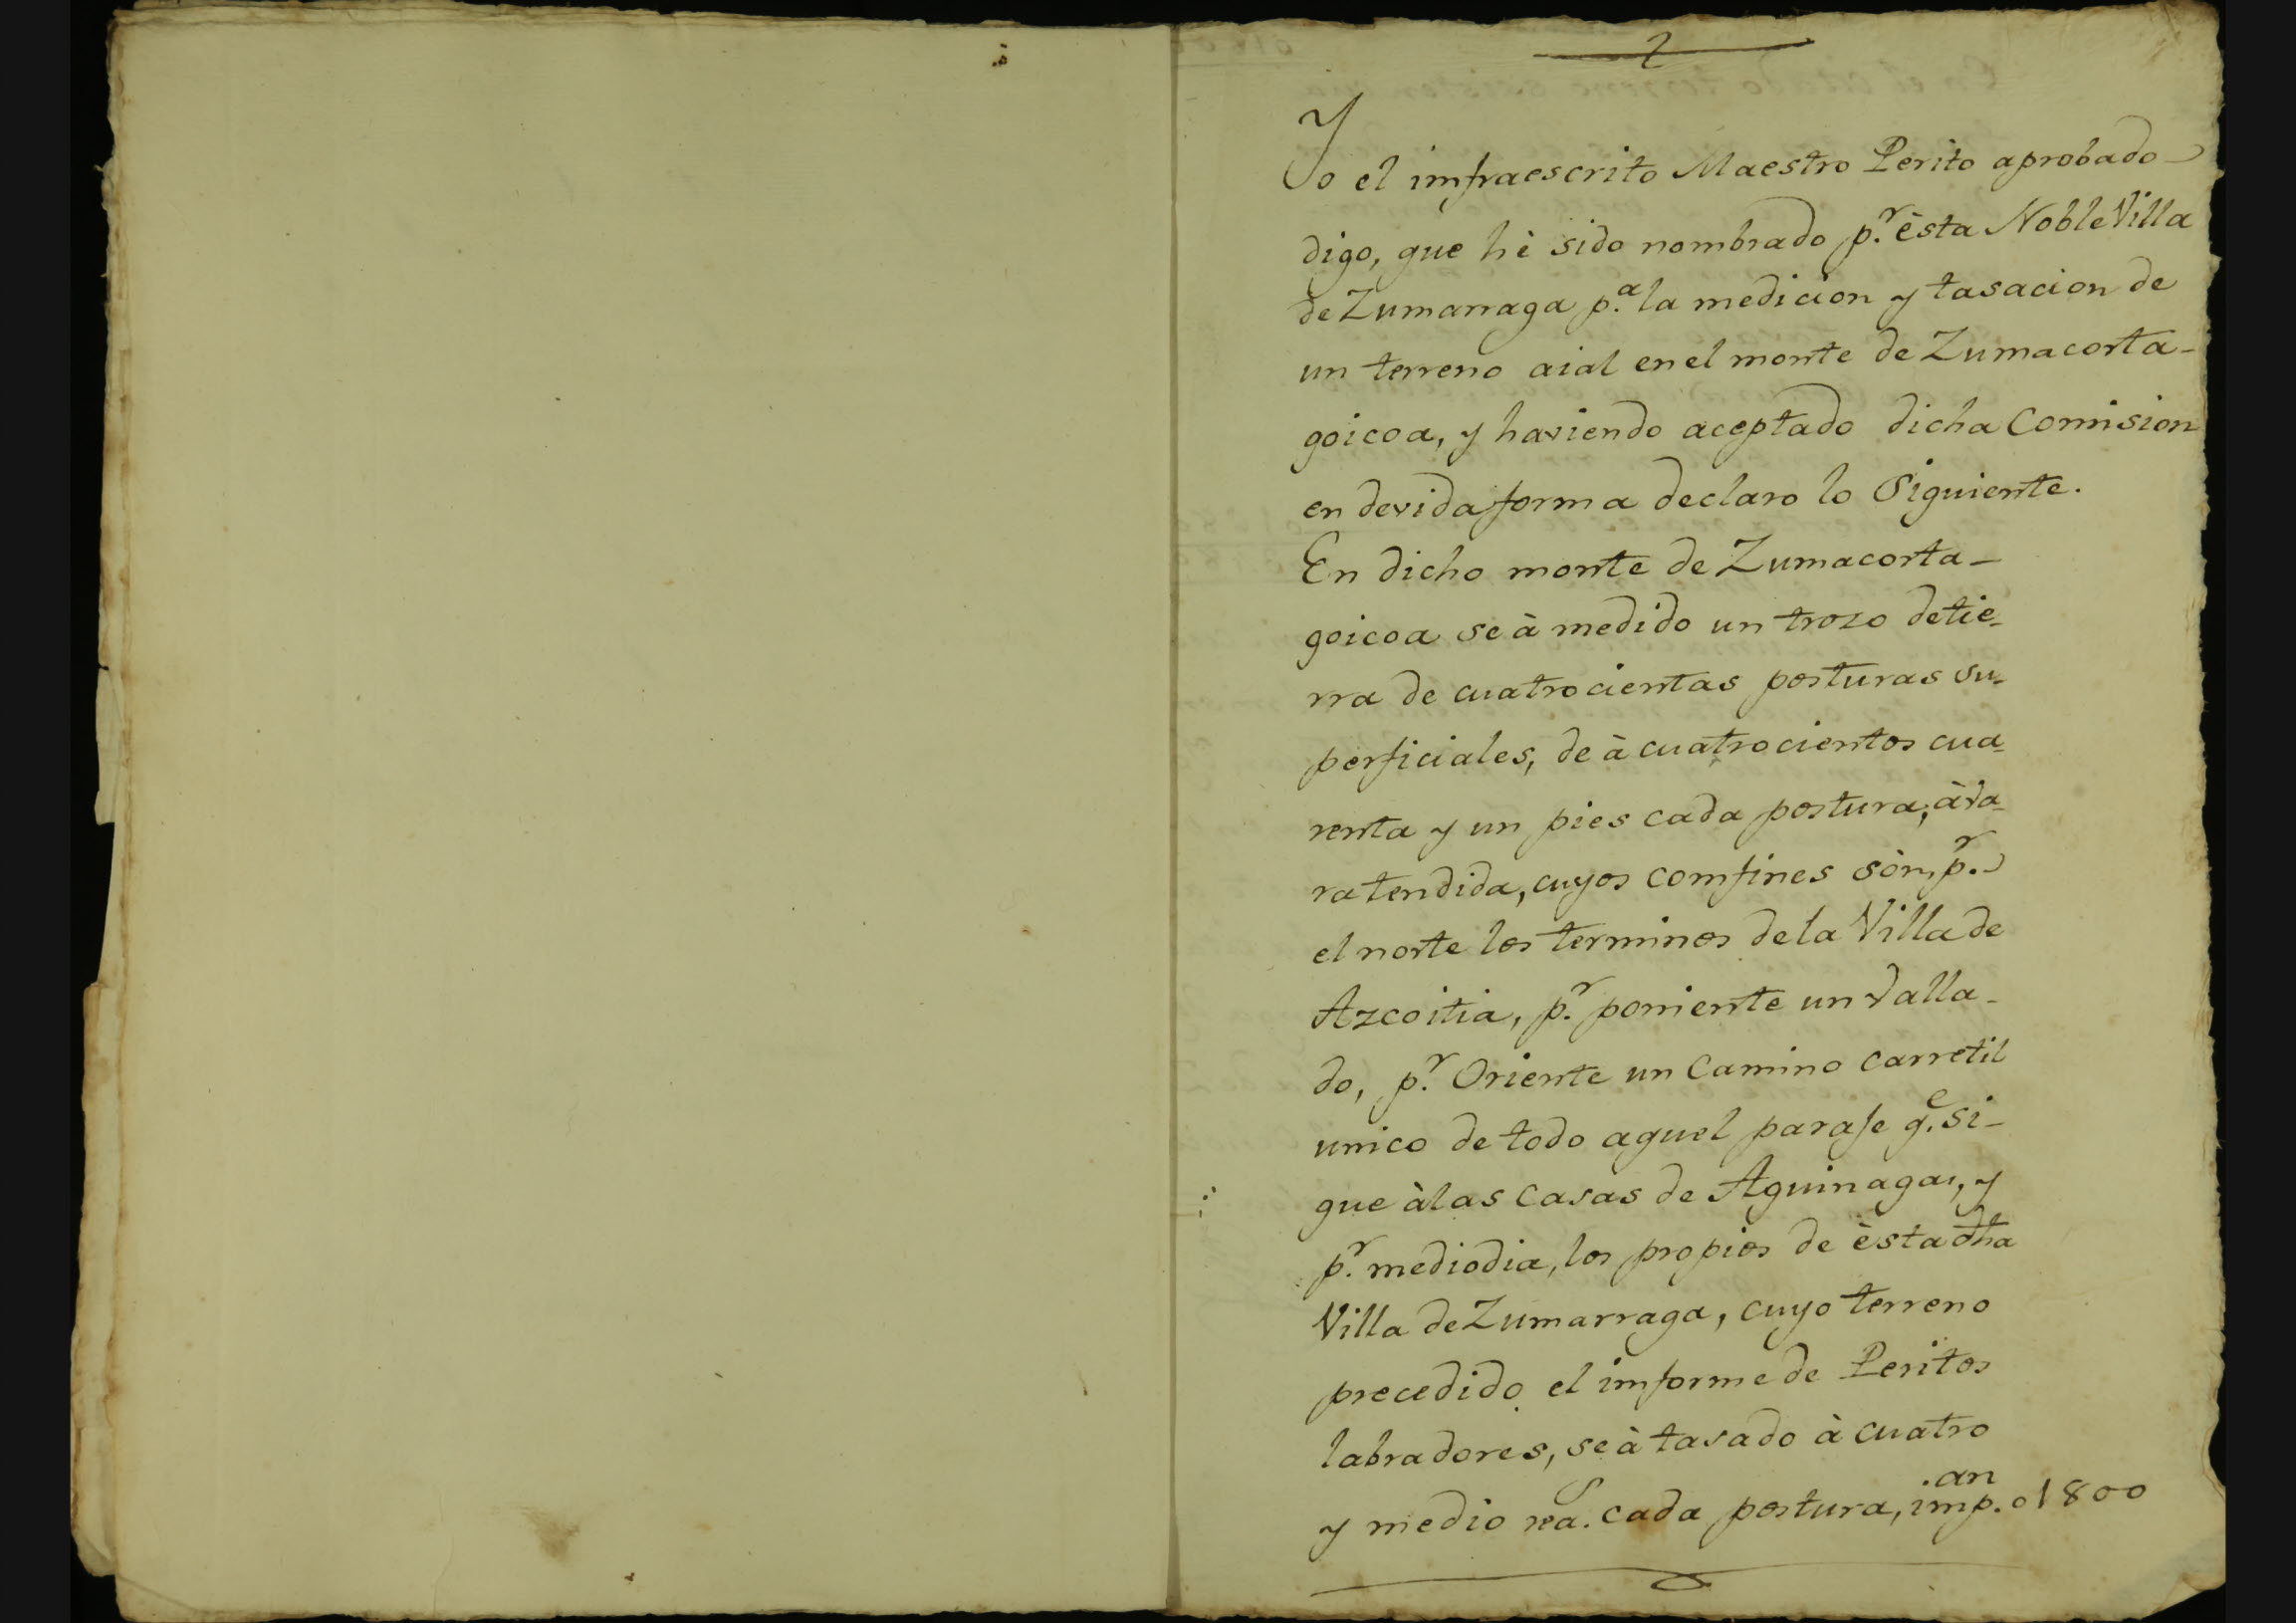 2
Yo el imfraescrito Maestro Perito aprobado
digo, que hè sido nombrado p.r èsta Noble Villa
de Zumarraga p.a la medicion y tasacion de
un terreno aial en el monte de Zumacorta-
goicoa, y haviendo aceptado dicha Comision
en devida forma declaro lo Siguiente.
En dicho monte de Zumacorta-
goicoa se à medido un trozo de tie-
rra de cuatrocientas posturas su-
perficiales, de à cuatrocientos cua-
renta y un pies cada postura, à va-
ra tendida, cuyos comfines sòn, p.r
el norte los terminos de la Villa de
Azcoitia, p.r poniente un valla-
do, p.r Oriente un Camino carretil
unico de todo aquel paraje q.e si-
gue à las Casas de Aguinaga, y
p.r mediodia, los propios de èsta dha
Villa de Zumarraga, cuyo terreno
precedido el imforme de Peritos
labradores, se à tasado à cuatro
y medio rea.s cada postura, imp.an 01800